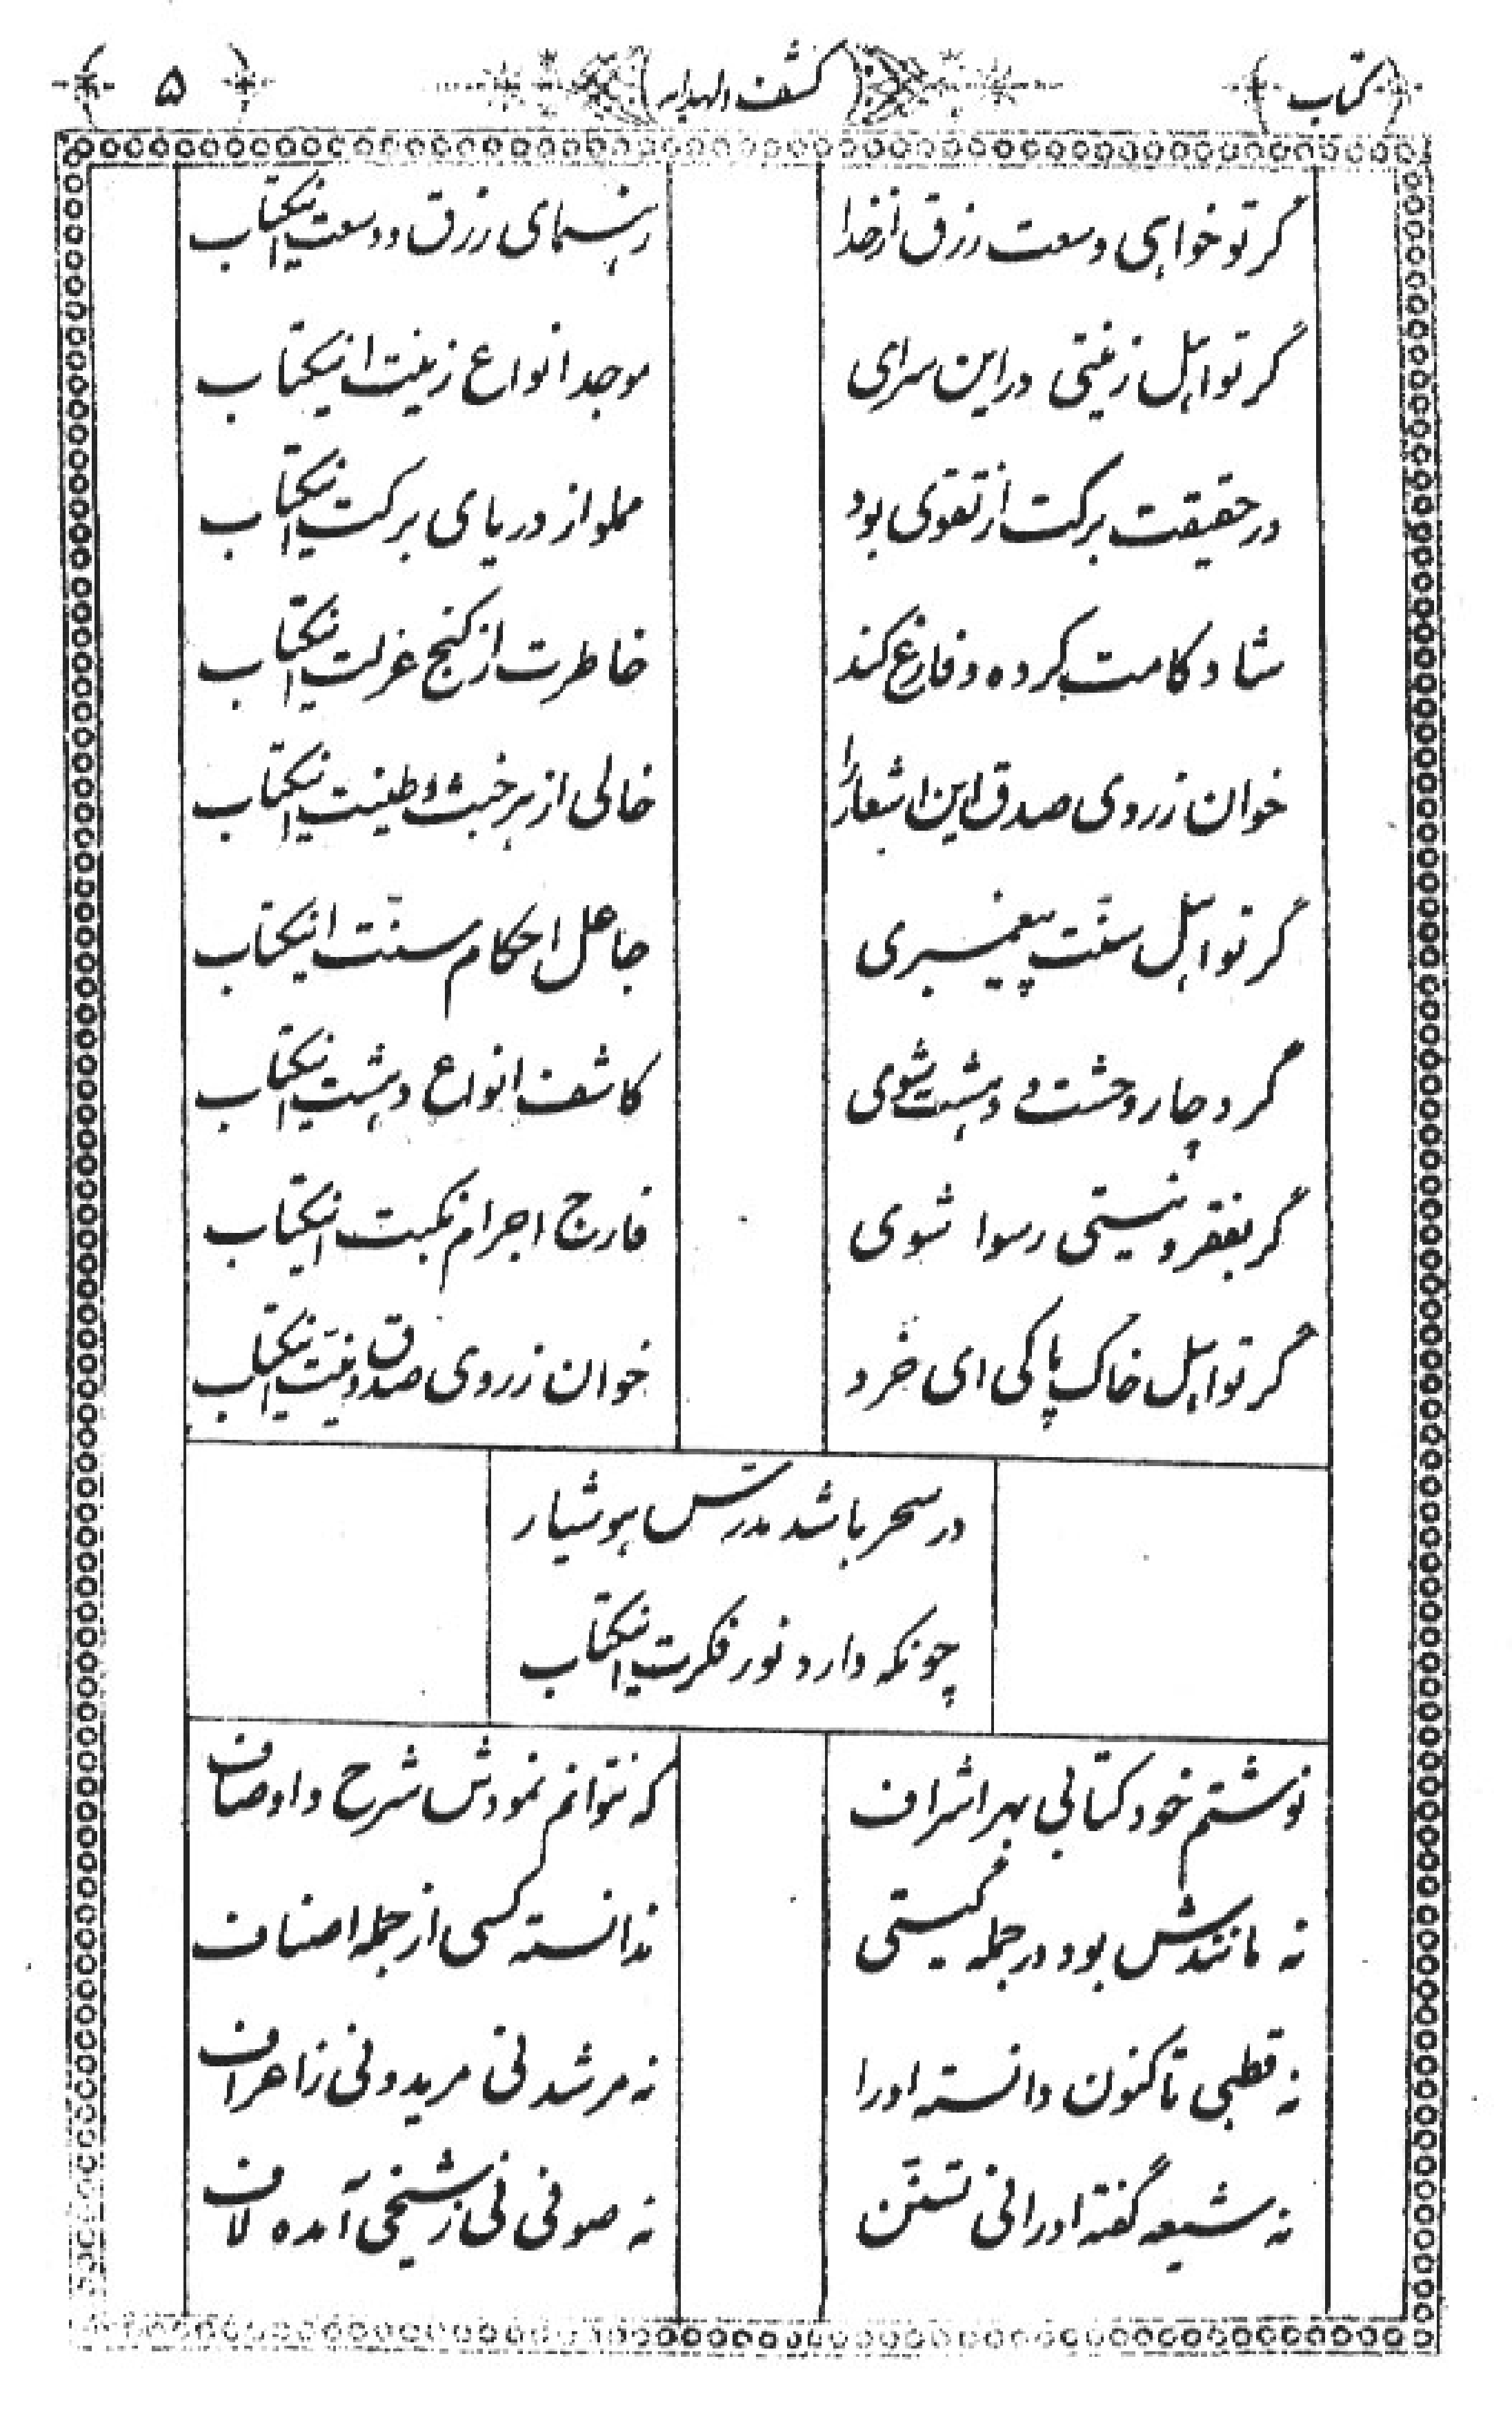 کتاب
کشف الهدایه
۵
گر تو خواهی وسعت رزق از خدا
رهنمای رزق و وسعت اینکتاب
گر تو اهل زینتی در این سرای
موجد انواع زینت اینکتاب
در حقیقت برکت از تقوی بود
مملو از دریای برکت اینکتاب
شاد کامت کرده و فارغ کند
خاطرت از کنج عزلت اینکتاب
خوان ز روی صدق این اشعار را
خالی از هر خبث و طینت اینکتاب
گر تو اهل سنّت پیغمبری
جاعل احکام سنّت اینکتاب
گر دچار وحشت و دهشت شوی
کاشف انواع دهشت اینکتاب
گر بفقر و نیستی رسوا شوی
فارج اجرام نکبت اینکتاب
گر تو اهل خاک پاکی ای خرد
خوان ز روی صدق و نیّت اینکتاب
در سحر باشد مدرّس هوشیار
چونکه دارد نور فکرت اینکتاب
نوشتم خود کتابی بهر اشراف
که نتوانم نمودش شرح و اوصاف
نه مانندش بود در جمله گیتی
ندانسته کسی از جمله اصناف
نه قطبی تا کنون دانسته او را
نه مرشد نی مرید و نی ز اعراف
نه شیعه گفته او را نی تسنّن
نه صوفی نی ز شیخی آمده لاف